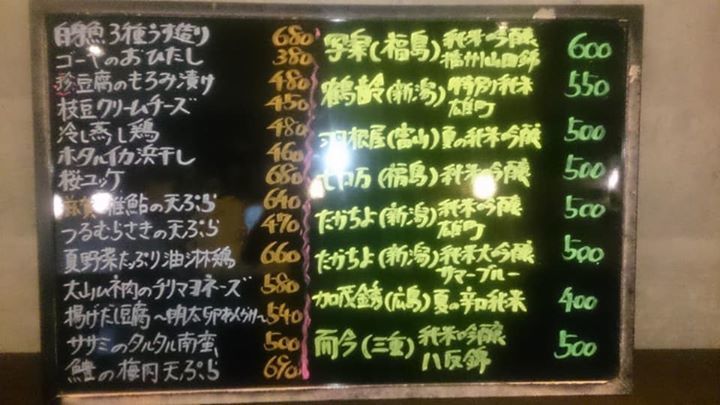 白身魚3種うす造り 680
ゴーヤのおひたし 380
珍 豆腐のもろみ漬け 480
枝豆クリームチーズ 450
冷し蒸し鶏 480
ホタルイカ浜干し 460
桜ユッケ 680
稚鮎の天ぷら 640
つるむらさきの天ぷら 470
夏野菜たっぷり油淋鶏 660
大山ムネ肉のチリマヨネーズ 580
揚げだし豆腐〜明太卵あんかけ〜 540
ササミのタルタル南蛮 500
鱧の梅肉天ぷら 690
写楽(福島) 純米吟醸 600
播州山田錦
鶴齢(新潟) 特別純米 550
雄町
羽根屋(富山) 夏の純米吟醸 500
七ロ万(福島) 純米吟醸 500
たかちよ(新潟) 純米吟醸 500
雄町
たかちよ(新潟) 純米大吟醸 500
サマーブルー
加茂錦(広島) 夏の辛口純米 400
而今(三重) 純米吟醸 500
八反錦